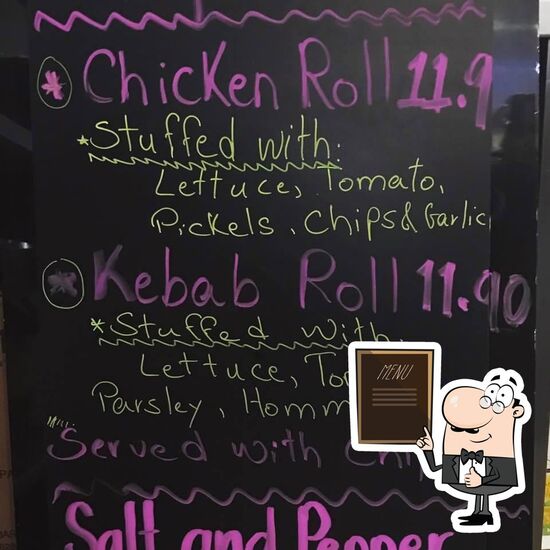 * Chicken Roll 11.9
* Stuffed with:
Lettuce, Tomato,
Pickels, Chips & Garlic
* Kebab Roll 11.90
* Stuffed with
Lettuce,
Parsley,
MENU
Served with
Salt and Pepper